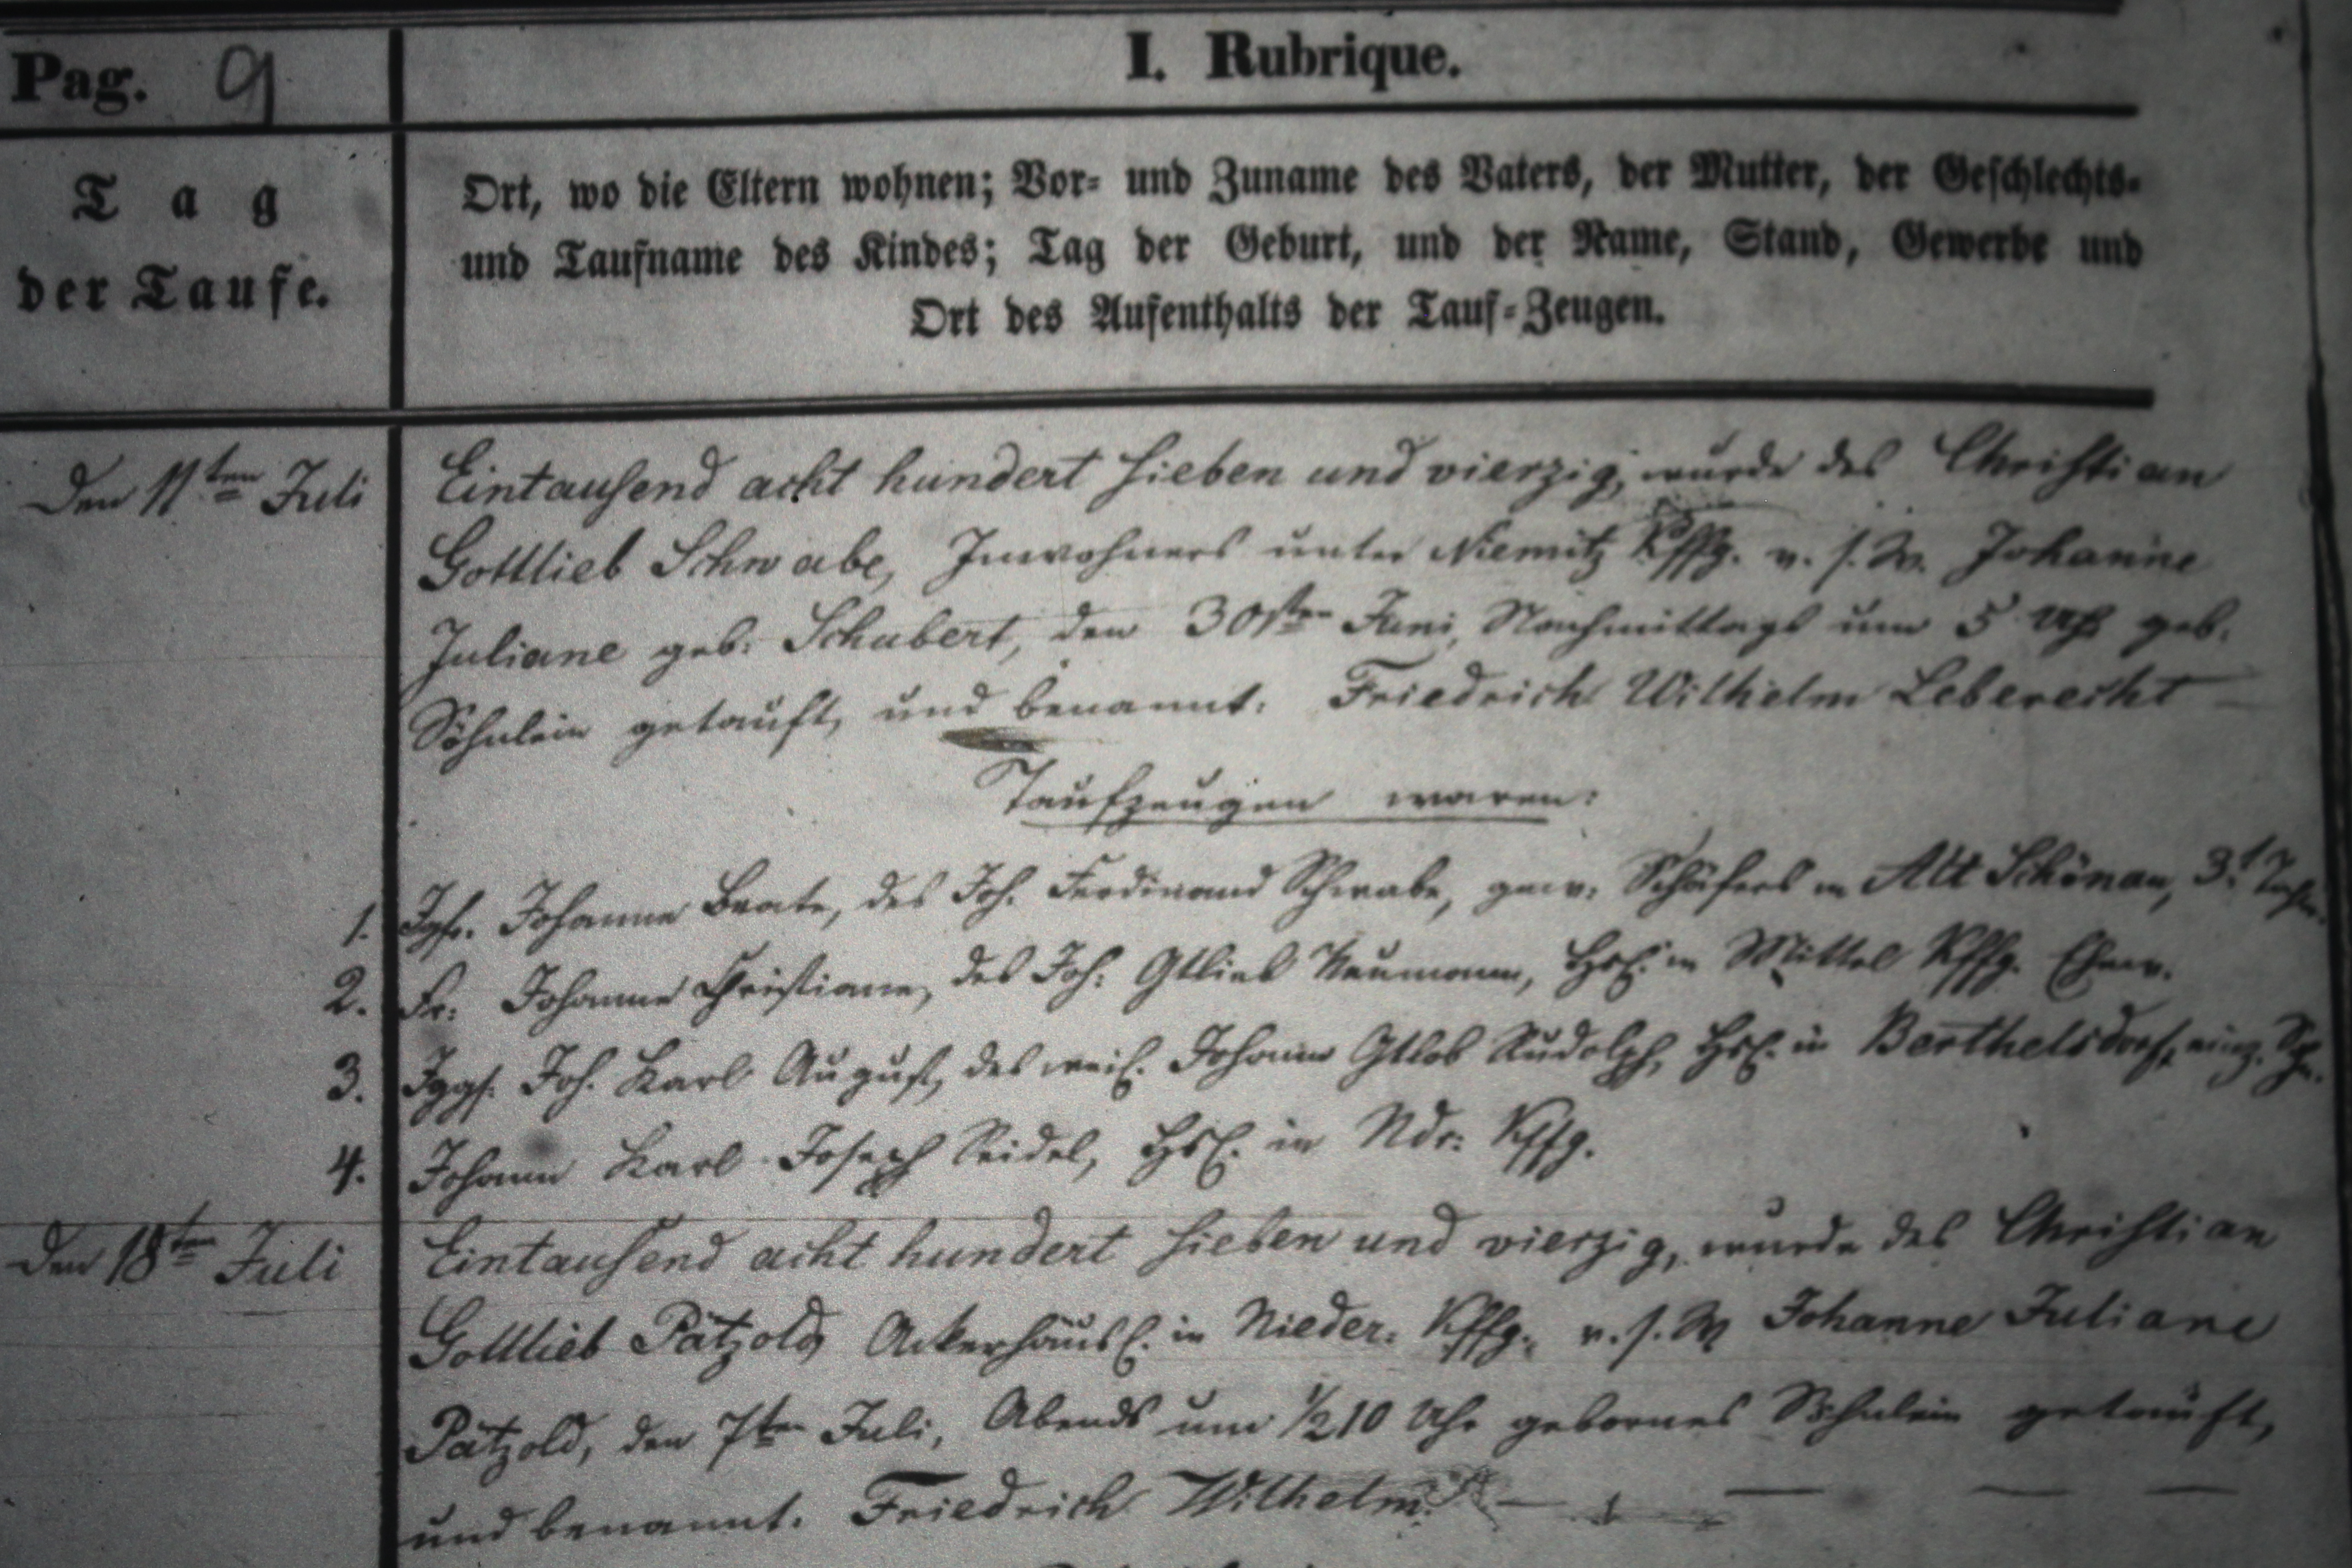 Pag. 9
I. Rubrique.
Tag
der Taufe.
Ort, wo die Eltern wohnen; Vor- und Zuname des Vaters, der Mutter, der Geschlechts-
und Taufname des Kindes; Tag der Geburt, und der Name, Stand, Gewerbe und
Ort des Aufenthalts der Tauf-Zeugen.
Den 11ten Juli
Eintausend acht hundert sieben und vierzig, wurde des Christian
Gottlieb Schwabe, Inwohners unter Niemitz Kffg. v. s. W. Johanne
Juliane geb: Schubert, den 30sten Juni, Nachmittags um 5 Uhr geb.
Söhnlein getauft, und benannt: Friedrich Wilhelm Leberecht —
Taufzeugen waren:
1. Jgfr. Johanne Beate, des Joh. Ferdinand Schwabe, gew. Schäfers in Alt Schönau, 3t
2. Fr. Johanne Christiane, des Joh: Gtlieb Neumann, Hsl. in Mittel Kffg. Ehew.
3. Jggs. Joh. Karl August, des weil. Johann Gtlob Rudolph, Hsl. in Berthelsdorf, einz. Sn.
4. Johann Karl Joseph Seidel, Hsl. in Ndr: Kffg.
Den 18ten Juli
Eintausend acht hundert sieben und vierzig, wurde des Christian
Gottlieb Pätzold, Ackerhäusl. in Nieder: Kffg. v. s. W Johanne Juliane
Pätzold, den 7ten Juli, Abends um ½10 Uhr gebornes Söhnlein getauft,
und benannt. Friedrich Wilhelm.